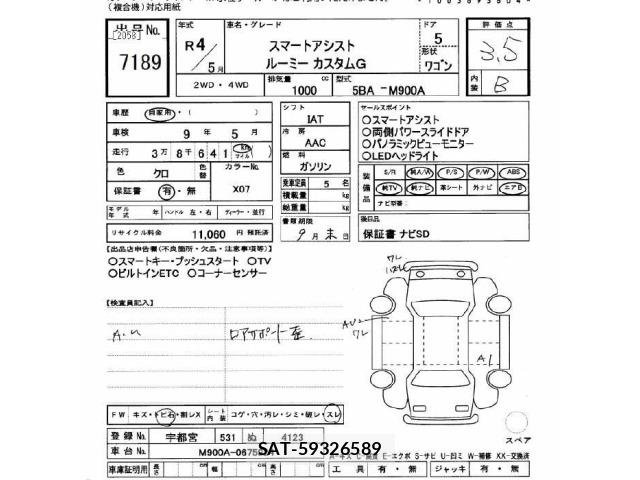 (複合機)対応用紙
出号No. [2058] 年式 車名・グレード ドア 評価点
7189 R4/5月 スマートアシスト 5 3.5
ルーミー カスタムG 形状 ワゴン
2WD・4WD 排気量 cc 型式 内装 B
1000 5BA -M900A
車歴 自家用・( ) シフト セールスポイント
車検 9年 5月 IAT ○スマートアシスト
走行 3万8千641 km マイル 冷房 AAC ○両側パワースライドドア
色 クロ 色替 カラーNo. 燃料 ガソリン ○パノラミックビューモニター
○LEDヘッドライト
保証書 有・無 X07 乗車定員 5名
積載量 kg
総重量 kg
装備品 S/R 純A/W P/S P/W ABS
純TV 純ナビ 革シート 外ナビ エアB
ナビ型番:
モデル年式 年 ハンドル 左・右 ディーラー・並行 書類期限 後日品
リサイクル料金 11,060 円 預託済 9月末日 保証書 ナビSD
【出品店申告欄(不良箇所・欠品・注意事項等)】
○スマートキー・プッシュスタート ○TV
○ビルトインETC ○コーナーセンサー
【検査員記入】
ワレ
AU2
ワレ
A1
FW キズ・トビ石・割レX シート内装 コゲ・穴・汚レ・シミ・破レ・スレ
スペア
登録No. 宇都宮 531 ぬ 4123
車台No. M900A-067 SAT-59326589
車庫証明用 長さ 幅 高さ 工具 有・無 ジャッキ 有・無